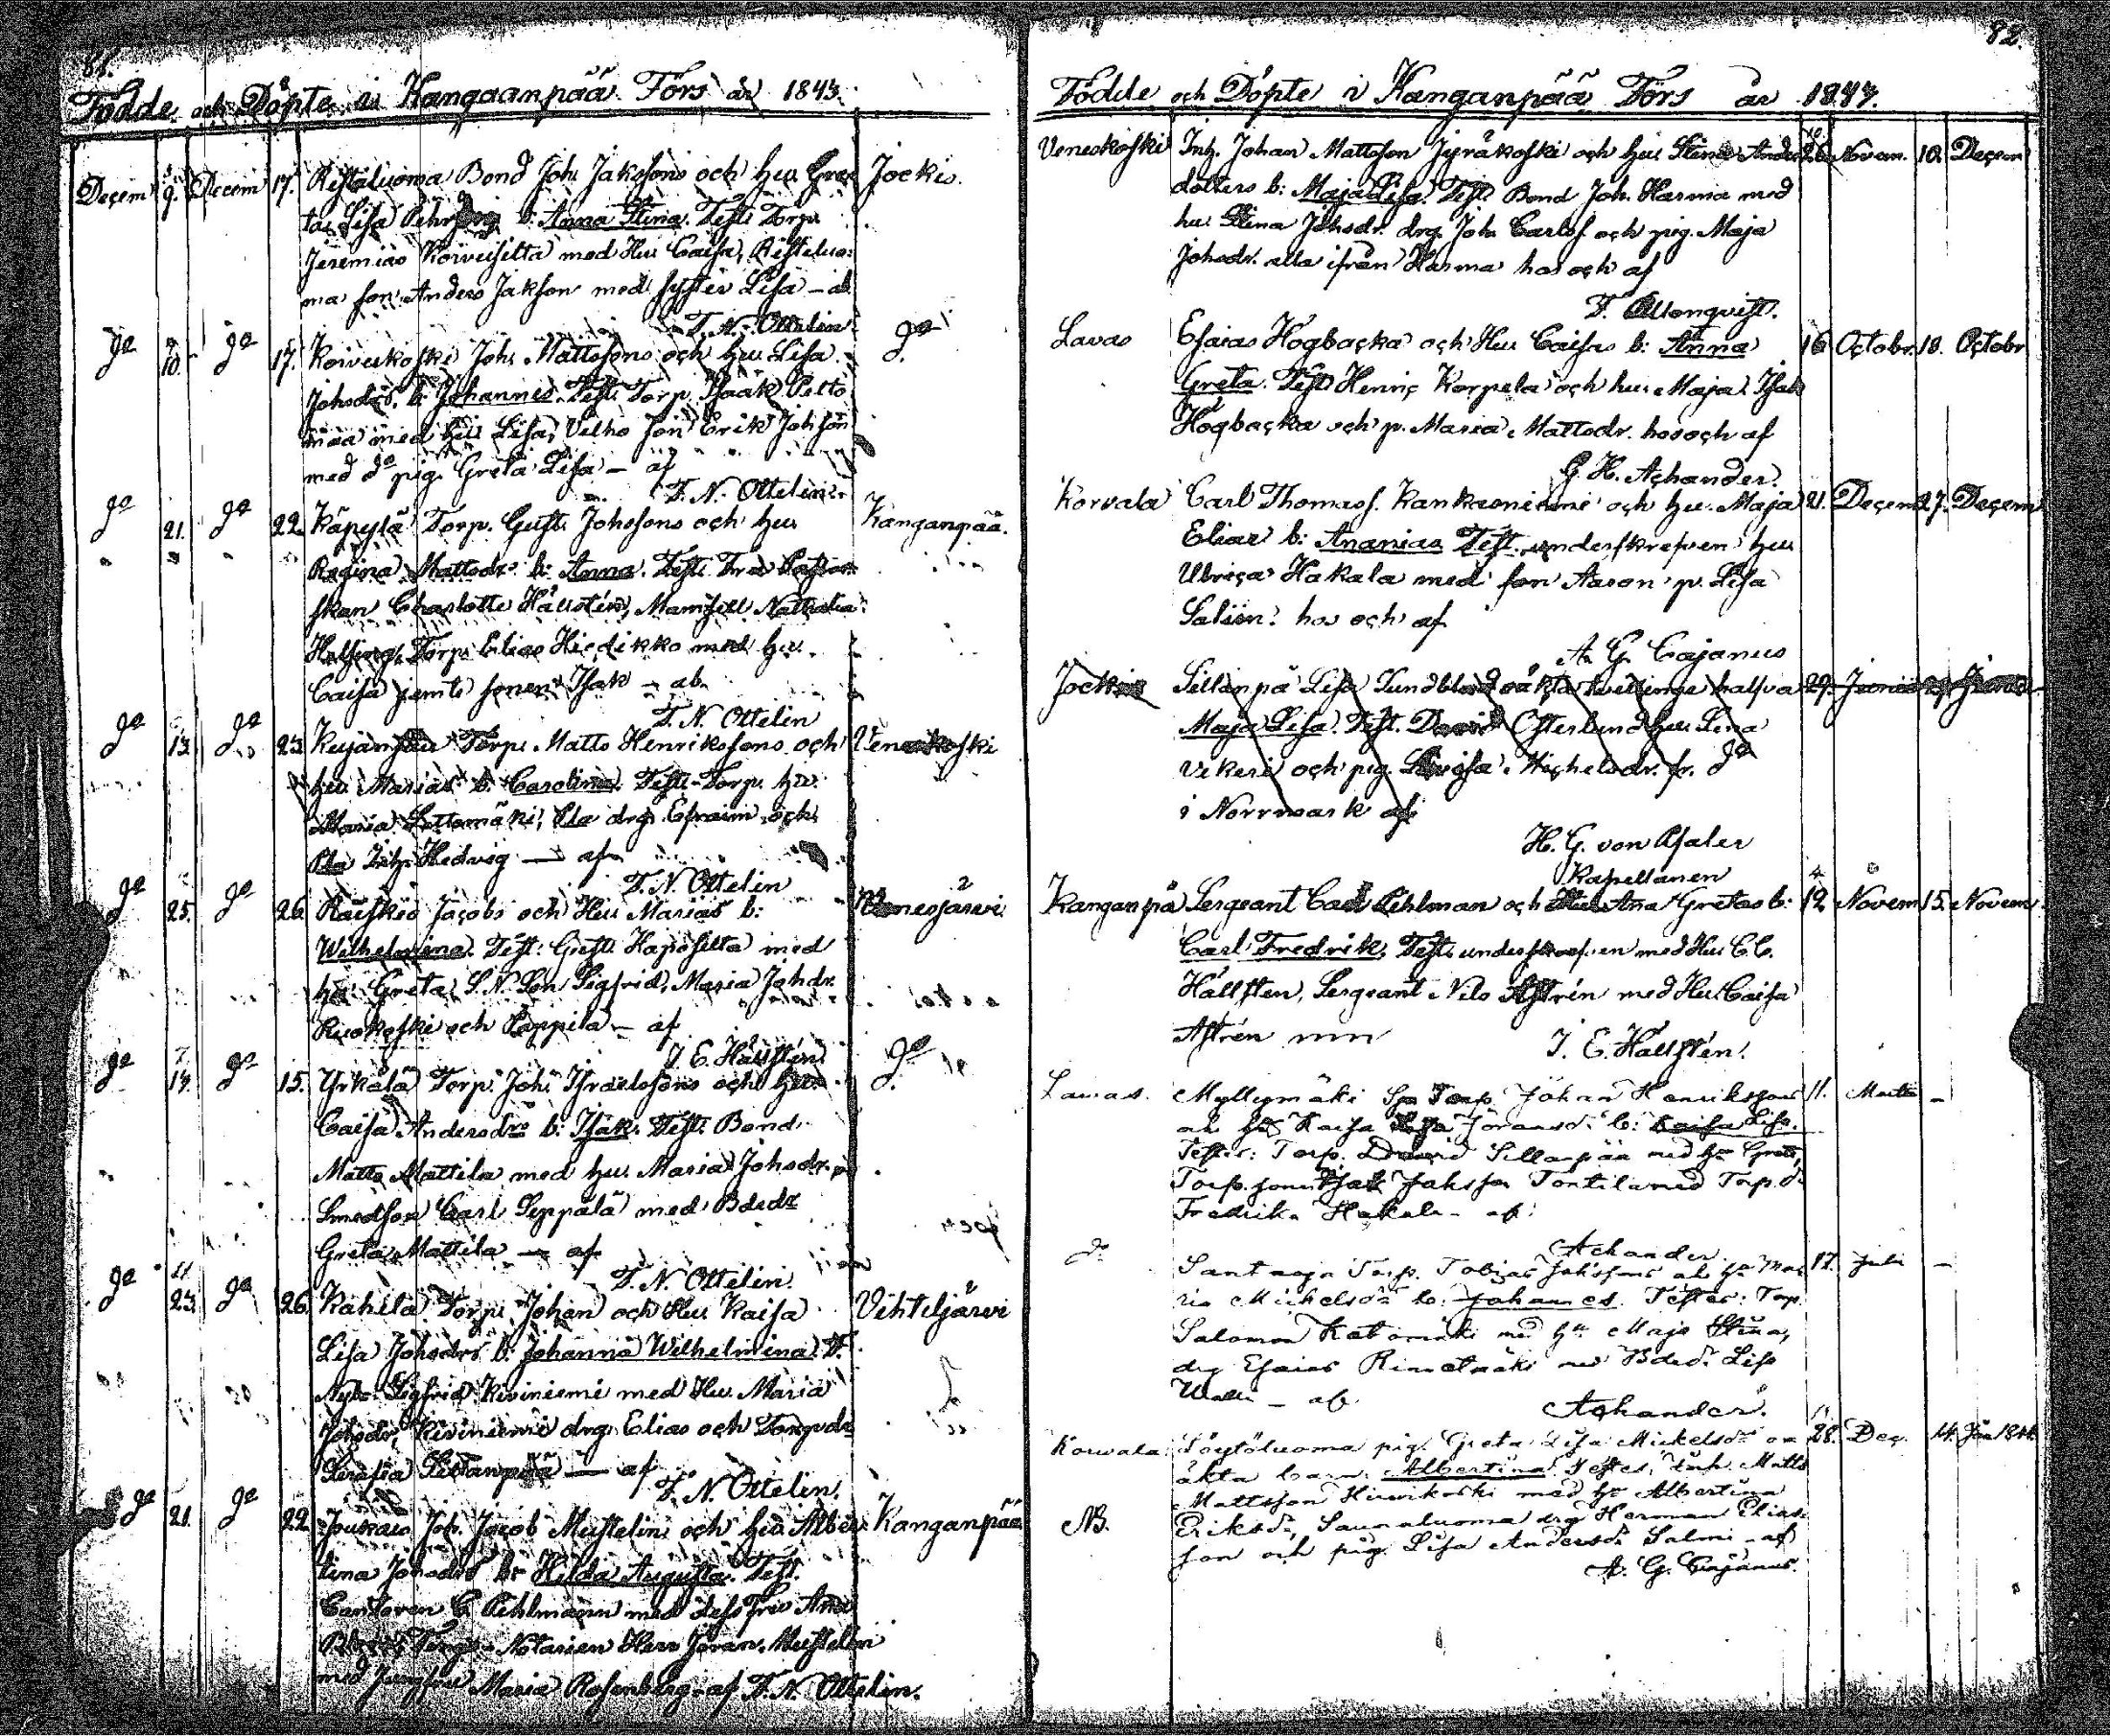 81.
Födde och Döpte i Kangaanpää Förs år 1843.
Decem 9. Decem 17. Ristaluoma Bond Joh. Jakssons och hu. Gre Jockis.
ta Lisa Pehrs b: Anna Stina. Test: Torp.
Jeremias Korvusilta med Hu. Caisa, Ristaluo:
ma son Anders Jakson med syster Lisa — af
F. N. Ottelin
do 10. do 17. Koivukoski Joh. Mattssons och hu. Lisa do
Johsdrs. b: Johannes. Test. Torp. Isaak Petto
maa med hu. Lisa, Velho son Erik Johsson
med do pig. Greta Lisa — af
F. N. Ottelin
do 21. do 22. Käpylä Torp. Gust. Johssons och hu. Kanganpää.
Regina Mattsdrs b: Anna. Test. Fru Pastor
skan Charlotte Hällstén, Mamsell Nathalia
Helsing, Torp. Elias Hiedikko med hu.
Caisa jemte sonen Isak — ab
F. N. Ottelin
do 13. do 23. Kujanpää Torp. Matts Henrikssons och Veneskoski
hu. Marias b: Carolina. Test. Torp. hu.
Maria Lettomäki, drg. Efraim och
Inh. Hedvig — af
F. N. Ottelin
do 25. do 26. Räiskiö Jacobs och Hu. Marias b: Venesjärvi
Wilhelmina. Test: Gust. Haposilta med
hu. Greta, S. N. Son Sigfrid, Maria Johdr.
Ruokoski och Seppilä — af
J. E. Hällstén
do 14. do 15. Yrkälä Torp. Joh. Israelssons och hu. do
Caisa Andersdrs b: Isak. Test. Bond.
Matts Mattila med hu. Maria Johsdr.
Smedson Carl Seppälä med Bdedr
Greta Mattila — af
F. N. Ottelin.
do 23. do 26. Kahila Torp. Johan och Hu. Kaisa Vihteljärvi
Lisa Johsdrs b: Johanna Wilhelmina. T.
Nyb. Sigfrid Kiviniemi med Hu. Maria
Johsdr, Kiviniemi drg. Elias och Torpdr
Serafia Sillanpää — af
F. N. Ottelin.
do 21. do 22. Joh. Jacob Mustelin och hu. Alber Kanganpää
tina Johsdrs b: Hilda Augusta. Test.
Cantoren C. Pihlmann med dess Fru Anna
Notarien Herr Jöran Mustelin
med Jungfru Maria Rosenberg - af F. N. Ottelin.
82.
Födde och Döpte i Kanganpää Förs år 1843.
Veneskoski Inh. Johan Mattsson Jyräkoski och hu. Stina Anders 26. Novem. 10. Decem
dotters b: Maja Lisa. Test. Bond Joh. Harma med
hu. Stina Johsdr. drg. Joh. Carlss. och pig. Maja
Johsdr. alla ifrån Harma hos och af
F. Allonqvist.
Lavas Esaias Högbacka och Hu. Caisas b: Anna 16 Octobr. 18. Octobr
Greta. Test. Henric Korpela och hu. Maja. Isak
Högbacka och p. Maria Mattsdr. hos och af
G. H. Achander.
Korvala Carl Thomass. Kankaoniemi och hu. Maja 21. Decem 27. Decem
Eliae b: Ananias Test. underskrefven hu.
Ulrica Hakala med son Aaron p. Lisa
Salæn. hos och af
A. G. Cajanus
Jockis Sillanpä Lisa Lundblad oäkta tvillinge halfva 29. Junii Junii
Maja Lisa. Test. David Österlund hu. Lena
Vekeri och pig. Lovisa Michelsdr. fr. do
i Norrmark af
H. G. von Pfaler
Kapellanen
Kanganpä Sergeant Carl Lihlman och Hu. Ana Gretas b: 12. Novem 15. Novem
Carl Fredrik. Test. underskrefven med Hu. C. C.
Hällsten, Sergeant Nils Astrén med Hu. Caisa
Astrén mm
J. E. Hällstén.
Lavas. Myllymäki Torp. Johan Henrikssons 11. Martii —
Kaisa Jöransdr b: Kaisa Lisa.
Testes: Torp. David Sillanpää med hu Greta,
Torp. sonen Isak Jaksson Tontila med Torp. d.
Fredrika Hakala — af
Achander.
do Santaoja Torp. Tobias Johssons och hu Ma 17. Julii —
ria Michelsdr b: Johannes. Testes: Torp.
Salomon Katomäki med hu Maja Stina,
drg Esaias Rinnetmäki med Bdedr Lisa
Uusli — af
Achander.
Korvala Löytöluoma pig. Greta Lisa Mickelsdr o 28. Dec. 14. Jan 1844.
äkta barn: Albertina. Testes, Inh. Matts
Mattsson Hirvikoski med hu Albertina
NB. Eriksdr, Saunaluoma drg Herman Elias
son och pig. Lisa Andersdr Salmi — af
A. G. Cajanus.